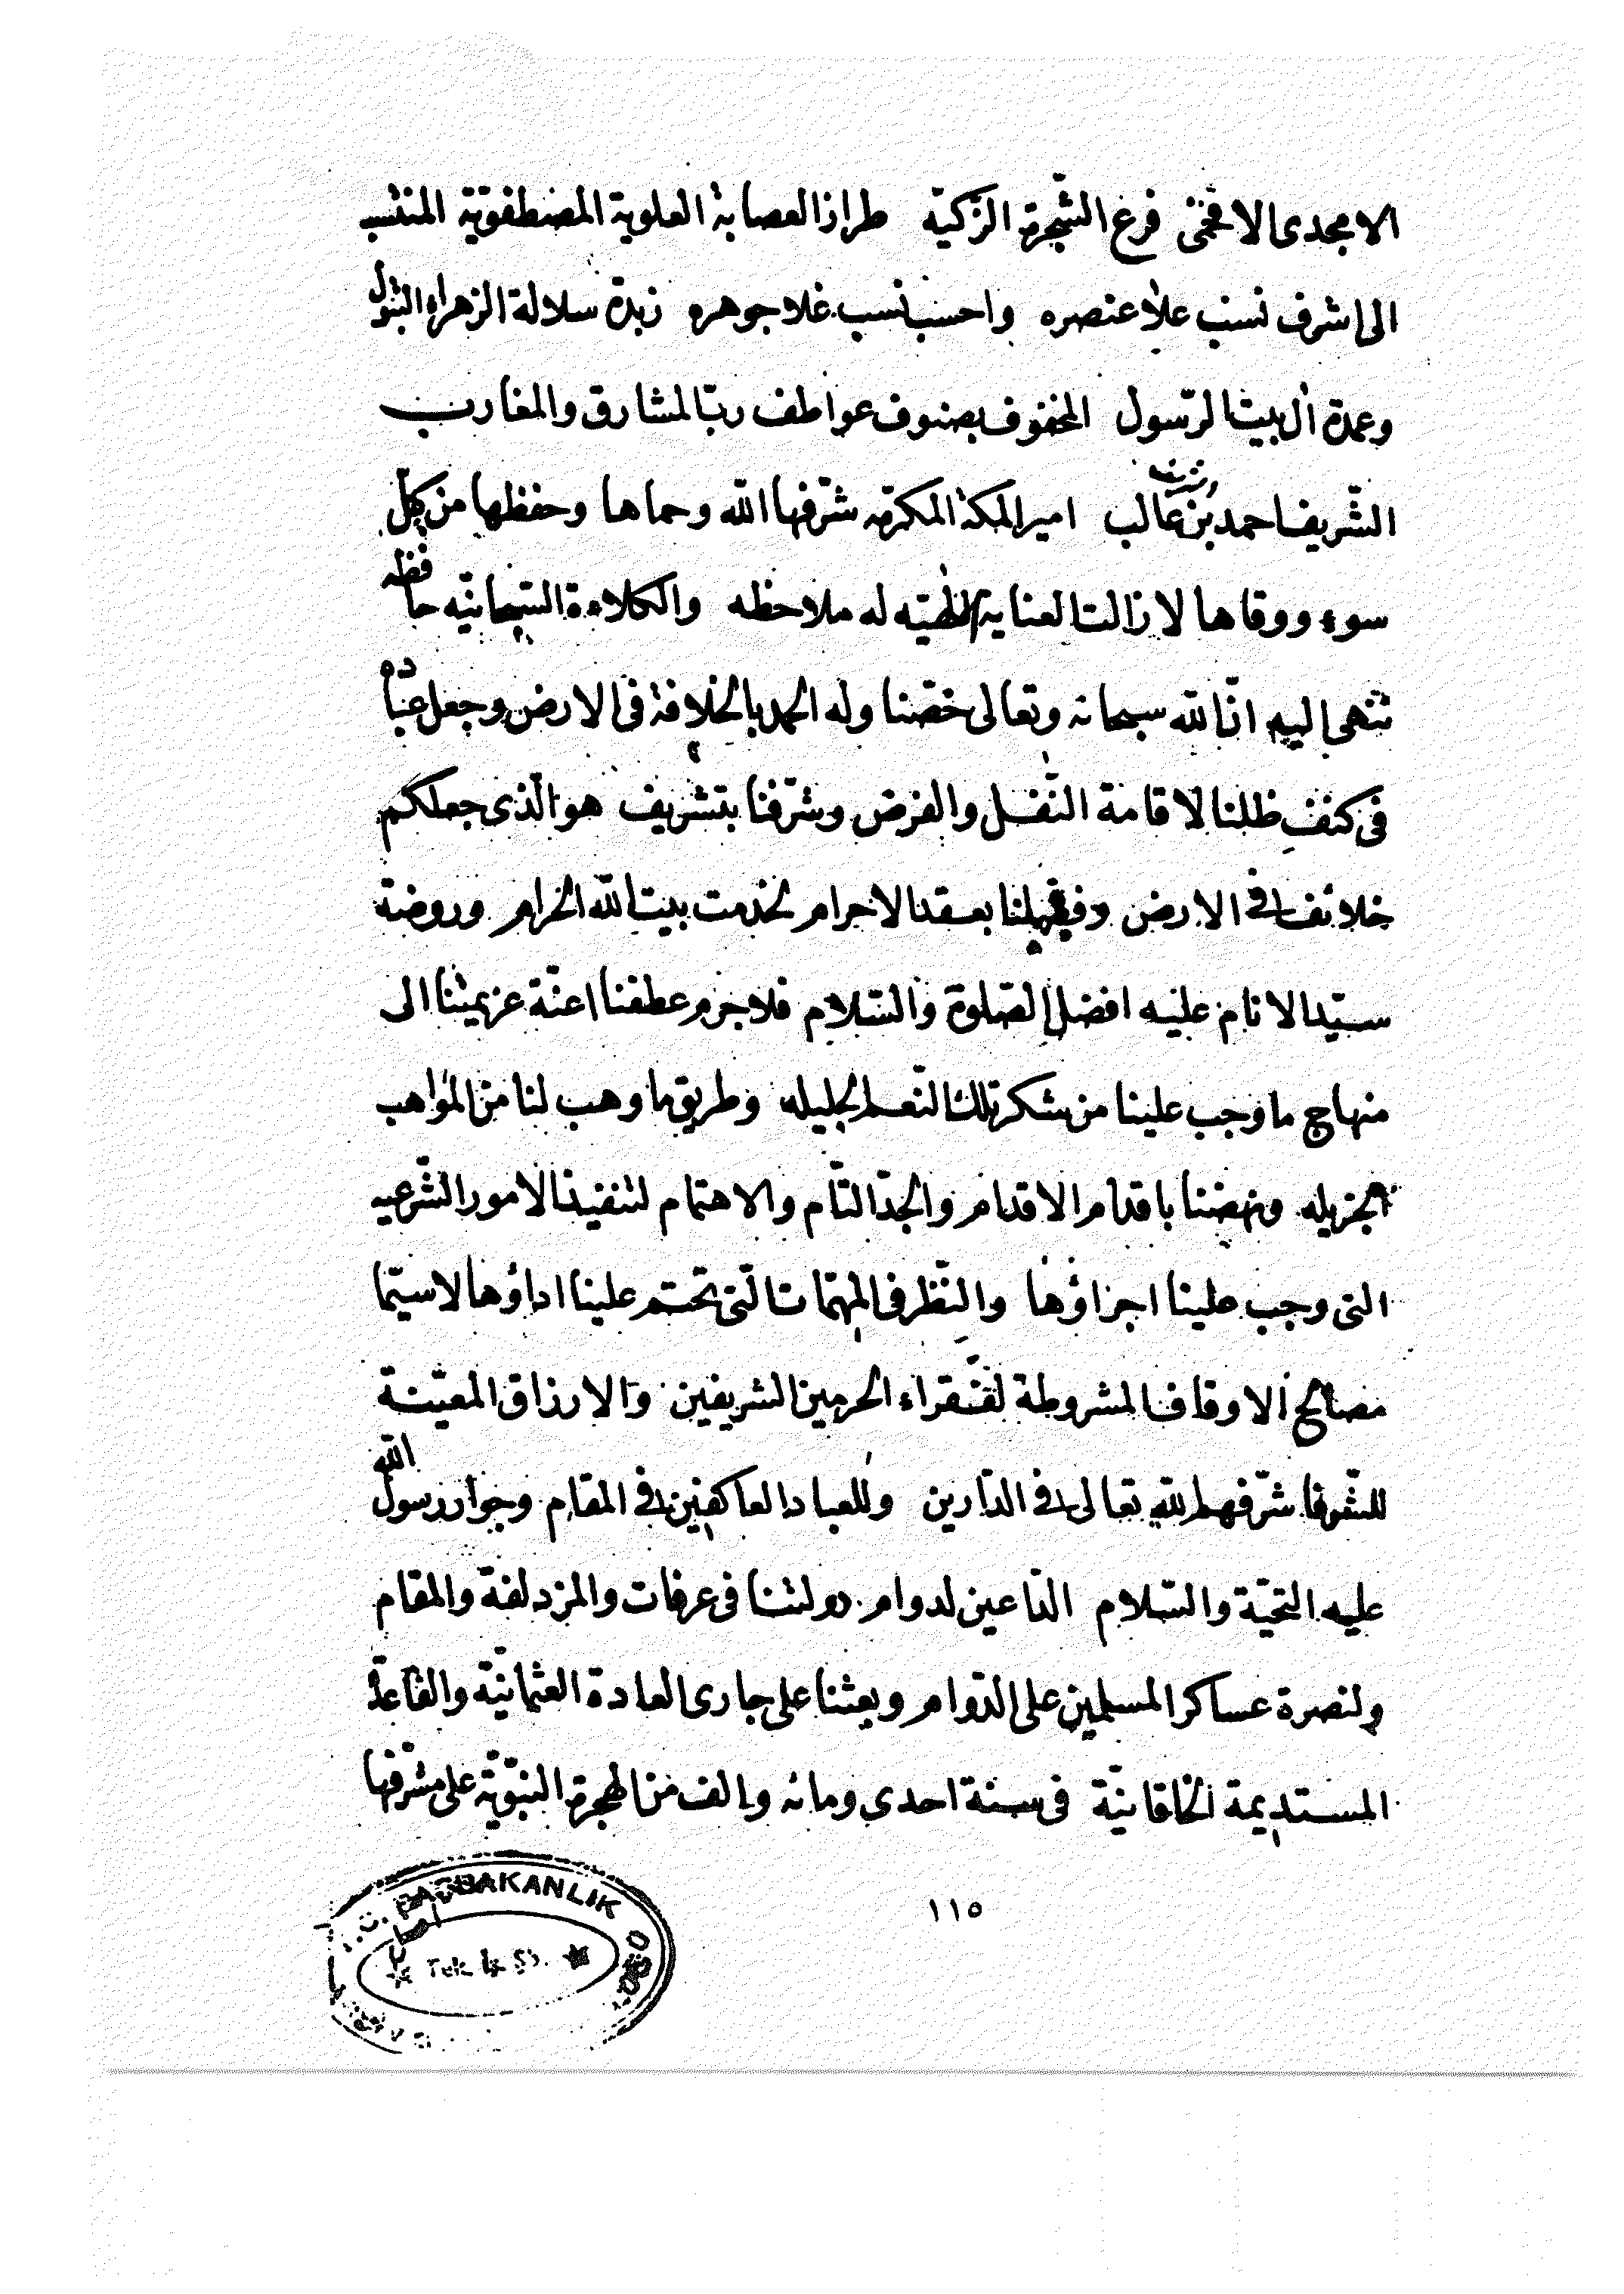 الامجدى الافخمى فرع الشّجرة الزّكيّة طراز العصابة العلوية المصطفويّة المنتسب
الى اشرف نسب علا عنصره واحسب نسب غلا جوهره زبدة سلالة الزهراء البتول
وعمدة ال بيت الرّسول المحفوف بصنوف عواطف ربّ المشارق والمغارب
الشّريف احمد بن غالب امير المكة المكرّمه شرّفها الله وحماها وحفظها من كلّ
سوء ووقاها لا زالت العناية له ملاحظه والكلاءة السّبحانيّه حافظه
ننهى اليه انّ الله سبحانه وتعالى خصّنا وله الحمد بالخلافة فى الارض وجعل عباده
فى كنف ظلنا لاقامة النّفل والفرض وشرّفنا بتشريف هو الّذى جعلكم
خلائف فى الارض بعقد الاحرام لخدمت بيت الله الحرام وروضة
سيّد الانام عليه افضل الصّلوة والسّلام فلا جرم عطفنا اعنّة عزيمتنا الى
منهاج ما وجب علينا من شكر تلك النّعم الجليله وطريق ما وهب لنا من المواهب
الجزيله ونهضنا باقدام الاقدام والجدّ التّام والاهتمام لتنفيذ الامور الشّرعيه
التى وجب علينا اجراؤها والنّظر فى المهمّات الّتى تحتم علينا اداؤها لا سيّما
مصالح الاوقاف المشروطة لفقراء الحرمين الشريفين والارزاق المعيّنة
للشّرفا شرّفهم الله تعالى فى الدّارين وللعباد العاكفين فى المقام وجوار رسول الله
عليه التّحيّة والسّلام الدّاعين لدوام دولتنا فى عرفات والمزدلفة والمقام
ولنصرة عساكر المسلمين على الدّوام وبعثنا على جارى العادة العثمانيّة والقاعدة
المستديمة الخاقانيّة فى سنة احدى ومائه والف من الهجرة النبّويّة على مشرفها
١١٥
T.C. BAŞBAKANLIK